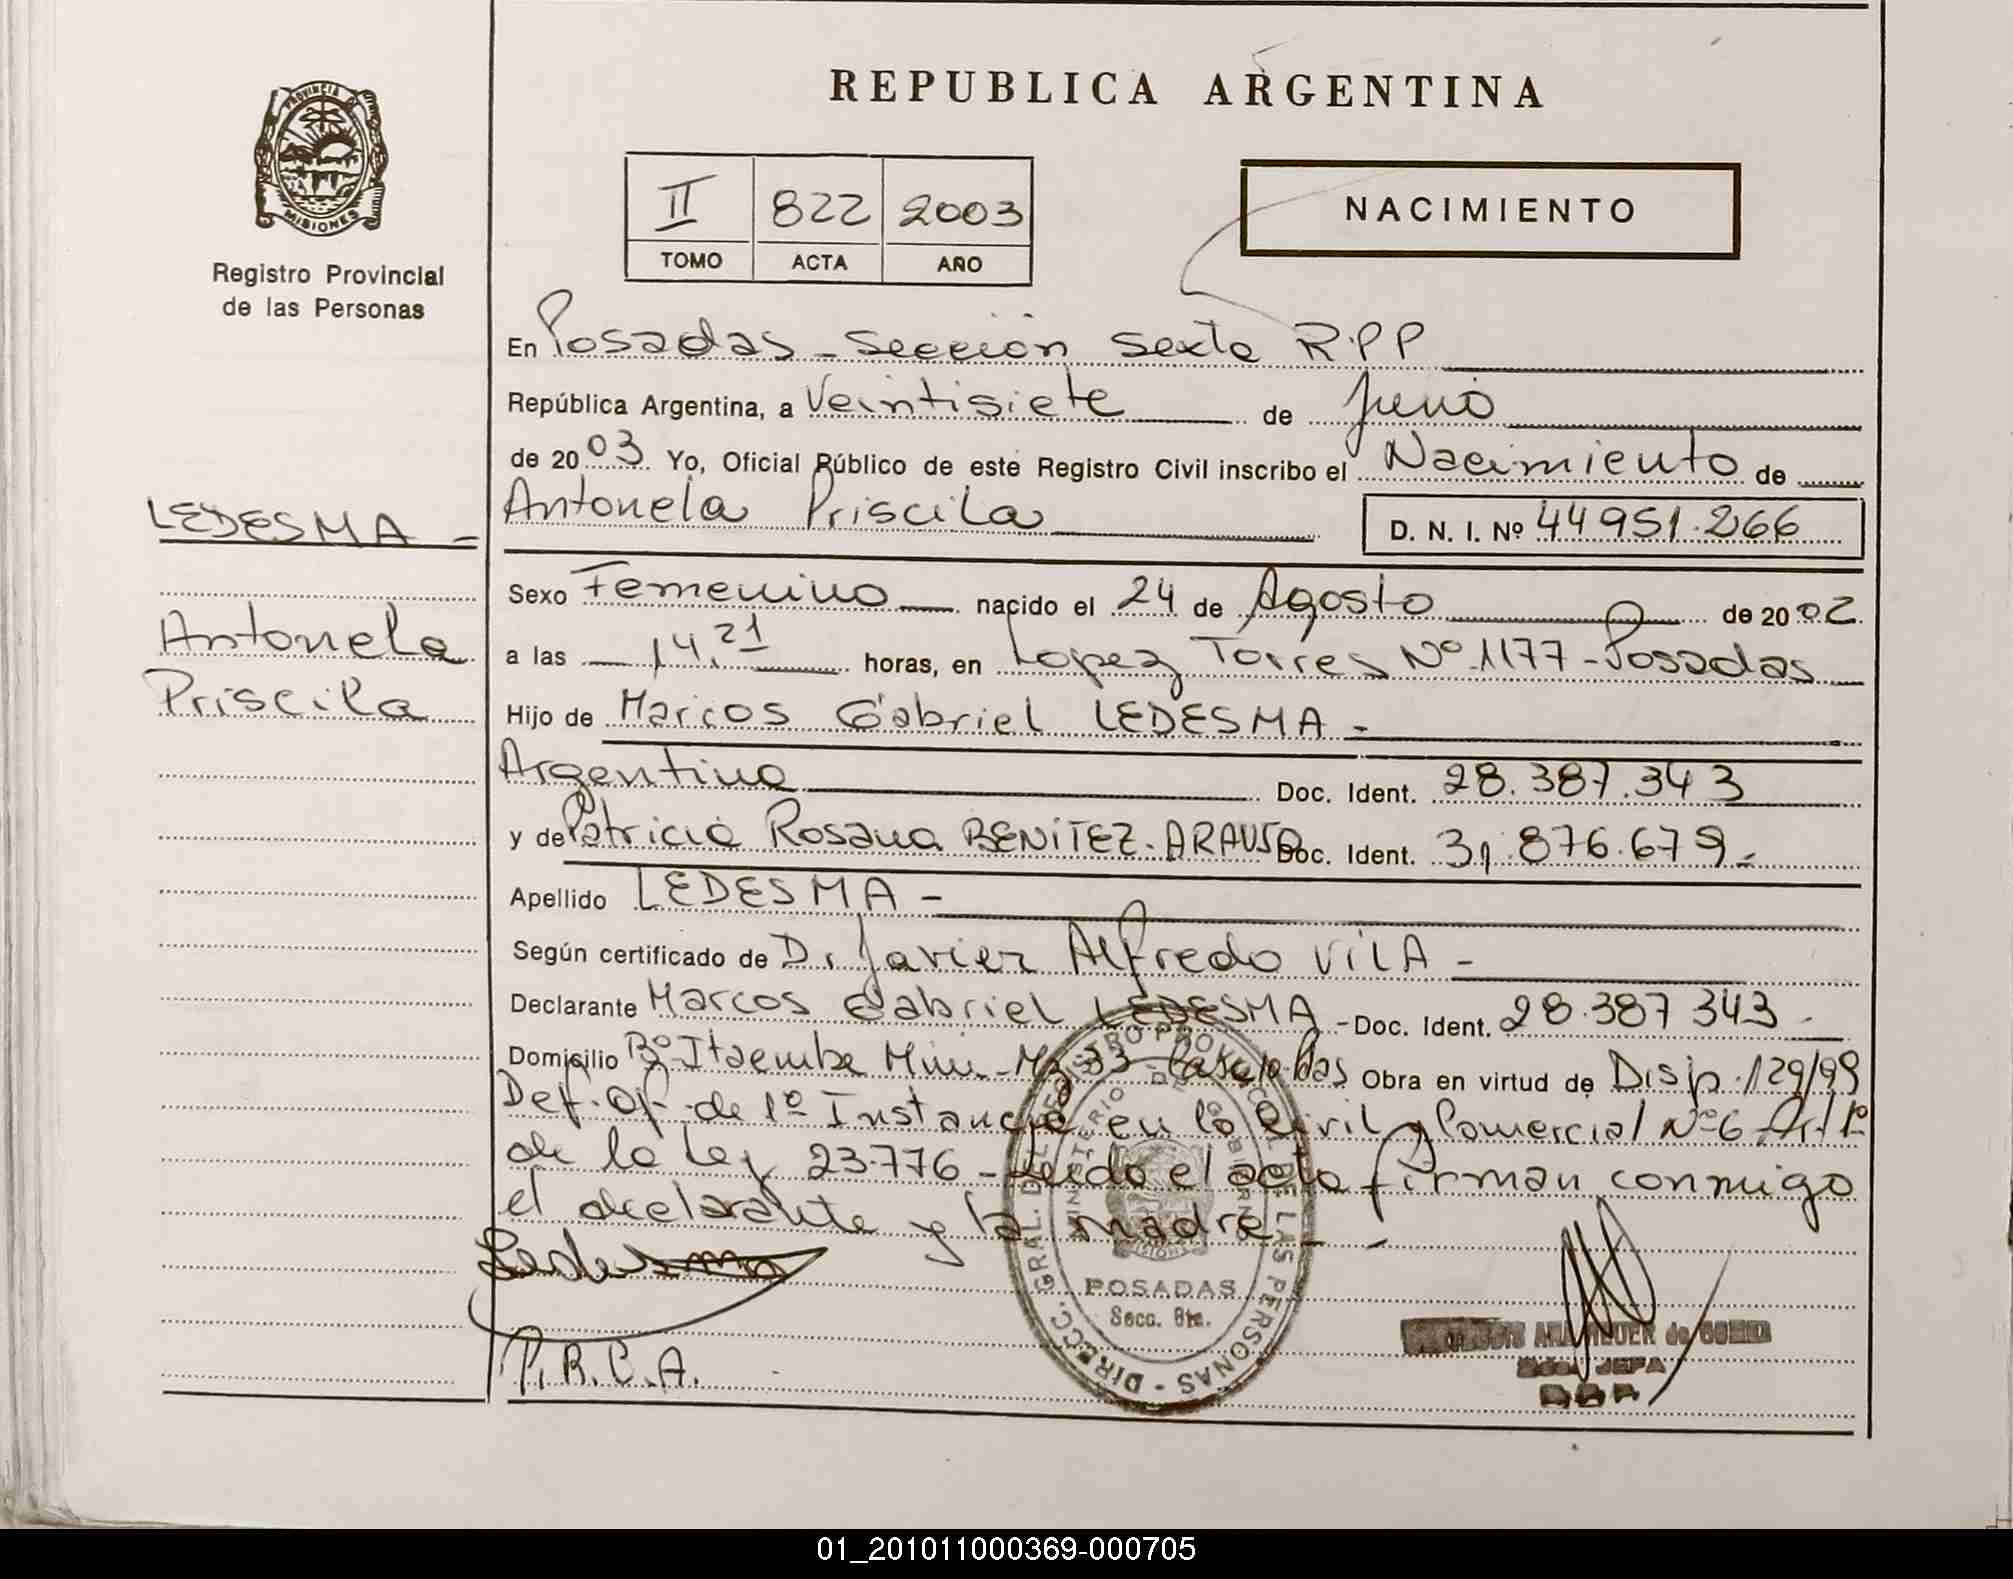 REPUBLICA ARGENTINA
PROVINCIA DE
MISIONES
Registro Provincial
de las Personas
II 822 2003
TOMO ACTA AÑO
NACIMIENTO
En Posadas - Sección Sexta R.P.P
República Argentina, a Veintisiete de Junio
de 2003. Yo, Oficial Público de este Registro Civil inscribo el Nacimiento de
Antonela Priscila D. N. I. Nº 44951.266
LEDESMA -
Antonela
Priscila
Sexo Femenino nacido el 24 de Agosto de 2002.
a las 14,21 horas, en Lopez Torres Nº 1177 - Posadas
Hijo de Marcos Gabriel LEDESMA -
Argentino Doc. Ident. 28.387.343
y de Patricia Rosana BENITEZ - ARAUJO Doc. Ident. 31.876.679 -
Apellido LEDESMA -
Según certificado de Dr Javier Alfredo VILA -
Declarante Marcos Gabriel LEDESMA - Doc. Ident. 28.387 343 -
Domicilio Bº Itaembe Mini - Mz 33 Casa Pdas Obra en virtud de Disp. 129/99
Def. Of. de 1º Instancia en lo Civil y Comercial Nº 6 Art 1º
de la Ley 23.776 - Leido el acta firman conmigo
el declarante y la madre -
Ledesma
P. R. B. A.
DIRECC. GRAL. DEL REGISTRO PROVINCIAL DE LAS PERSONAS -
MINISTERIO DE GOBIERNO
MISIONES
POSADAS
Secc. 6ta.
JEFA